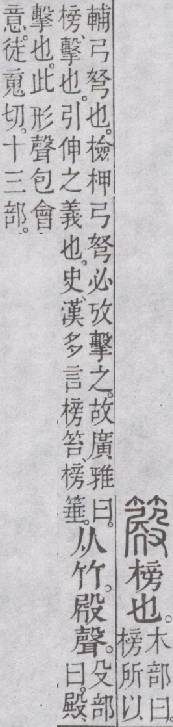 榜也。
木部曰
榜所以
輔弓弩也。檢柙弓弩必攷擊之。故廣雅曰。
榜、擊也。引伸之義也。史、漢多言榜笞、榜箠。
从竹。殿聲。
殳部
曰。殿
擊也。此形聲包會
意。徒䰟切。十三部。